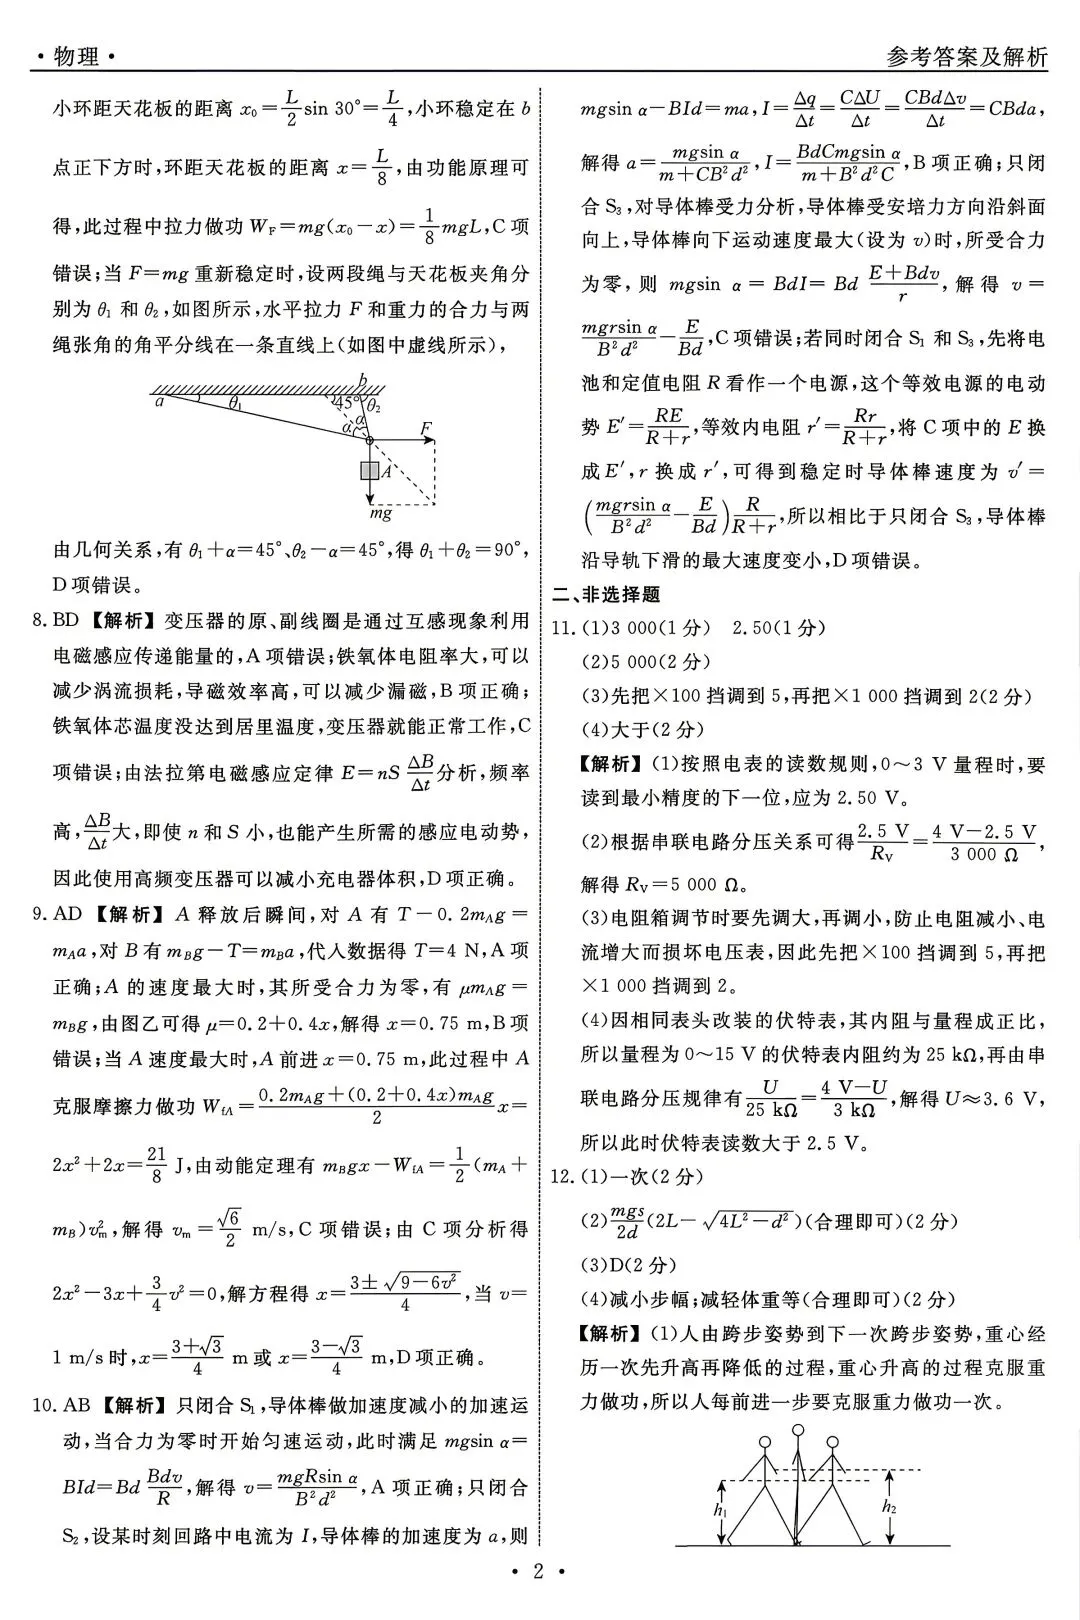 ·物理·
参考答案及解析
小环距天花板的距离 x₀=L/2 sin 30°=L/4,小环稳定在 b
点正下方时,环距天花板的距离 x=L/8,由功能原理可
得,此过程中拉力做功 W_F=mg(x₀-x)=1/8 mgL,C 项
错误;当 F=mg 重新稳定时,设两段绳与天花板夹角分
别为 θ₁ 和 θ₂,如图所示,水平拉力 F 和重力的合力与两
绳张角的角平分线在一条直线上(如图中虚线所示),
a θ₁ 45° b θ₂
α α F
A
mg
由几何关系,有 θ₁+α=45°、θ₂-α=45°,得 θ₁+θ₂=90°,
D 项错误。
8. BD 【解析】变压器的原、副线圈是通过互感现象利用
电磁感应传递能量的,A 项错误;铁氧体电阻率大,可以
减少涡流损耗,导磁效率高,可以减少漏磁,B 项正确;
铁氧体芯温度没达到居里温度,变压器就能正常工作,C
项错误;由法拉第电磁感应定律 E=nS ΔB/Δt 分析,频率
高,ΔB/Δt 大,即使 n 和 S 小,也能产生所需的感应电动势,
因此使用高频变压器可以减小充电器体积,D 项正确。
9. AD 【解析】A 释放后瞬间,对 A 有 T-0.2m_Ag=
m_Aa,对 B 有 m_Bg-T=m_Ba,代入数据得 T=4 N,A 项
正确;A 的速度最大时,其所受合力为零,有 μm_Ag=
m_Bg,由图乙可得 μ=0.2+0.4x,解得 x=0.75 m,B 项
错误;当 A 速度最大时,A 前进 x=0.75 m,此过程中 A
克服摩擦力做功 W_fA=(0.2m_Ag+(0.2+0.4x)m_Ag)/2 x=
2x²+2x=21/8 J,由动能定理有 m_Bgx-W_fA=1/2(m_A+
m_B)v_m²,解得 v_m=√6/2 m/s,C 项错误;由 C 项分析得
2x²-3x+3/4 v²=0,解方程得 x=(3±√(9-6v²))/4,当 v=
1 m/s 时,x=(3+√3)/4 m 或 x=(3-√3)/4 m,D 项正确。
10. AB 【解析】只闭合 S₁,导体棒做加速度减小的加速运
动,当合力为零时开始匀速运动,此时满足 mgsin α=
BId=Bd Bdv/R,解得 v=mgRsin α/(B²d²),A 项正确;只闭合
S₂,设某时刻回路中电流为 I,导体棒的加速度为 a,则
mgsin α-BId=ma,I=Δq/Δt=CΔU/Δt=CBdΔv/Δt=CBda,
解得 a=mgsin α/(m+CB²d²),I=BdCmgsin α/(m+B²d²C),B 项正确;只闭
合 S₃,对导体棒受力分析,导体棒受安培力方向沿斜面
向上,导体棒向下运动速度最大(设为 v)时,所受合力
为零,则 mgsin α=BdI=Bd (E+Bdv)/r,解得 v=
mgrsin α/(B²d²)-E/Bd,C 项错误;若同时闭合 S₁ 和 S₃,先将电
池和定值电阻 R 看作一个电源,这个等效电源的电动
势 E′=RE/(R+r),等效内电阻 r′=Rr/(R+r),将 C 项中的 E 换
成 E′,r 换成 r′,可得到稳定时导体棒速度为 v′=
(mgrsin α/(B²d²)-E/Bd) R/(R+r),所以相比于只闭合 S₃,导体棒
沿导轨下滑的最大速度变小,D 项错误。
二、非选择题
11. (1)3 000(1 分) 2.50(1 分)
(2)5 000(2 分)
(3)先把×100 挡调到 5,再把×1 000 挡调到 2(2 分)
(4)大于(2 分)
【解析】(1)按照电表的读数规则,0~3 V 量程时,要
读到最小精度的下一位,应为 2.50 V。
(2)根据串联电路分压关系可得 2.5 V/R_V=(4 V-2.5 V)/3 000 Ω,
解得 R_V=5 000 Ω。
(3)电阻箱调节时要先调大,再调小,防止电阻减小、电
流增大而损坏电压表,因此先把×100 挡调到 5,再把
×1 000 挡调到 2。
(4)因相同表头改装的伏特表,其内阻与量程成正比,
所以量程为 0~15 V 的伏特表内阻约为 25 kΩ,再由串
联电路分压规律有 U/25 kΩ=(4 V-U)/3 kΩ,解得 U≈3.6 V,
所以此时伏特表读数大于 2.5 V。
12. (1)一次(2 分)
(2)mgs/2d(2L-√(4L²-d²))(合理即可)(2 分)
(3)D(2 分)
(4)减小步幅;减轻体重等(合理即可)(2 分)
【解析】(1)人由跨步姿势到下一次跨步姿势,重心经
历一次先升高再降低的过程,重心升高的过程克服重
力做功,所以人每前进一步要克服重力做功一次。
h₁ h₂
· 2 ·